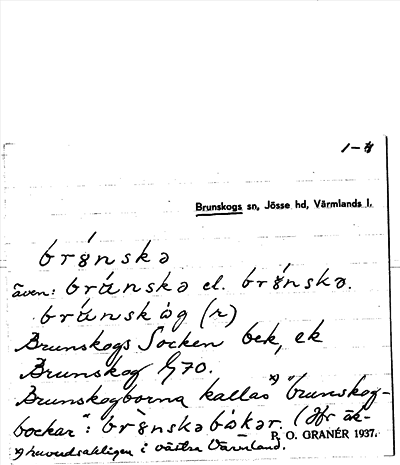 1-4
Brunskogs sn, Jösse hd, Värmlands l.
brɤ́nskə
även: brúnskə el. brɤ́nskə.
brúnskòg (r)
Brunskogs Socken bek, ek
Brunskog G70.
Brunskogborna kallas x) "brunskog-
bockar": brɤ̀nskəbòkər. (Jfr äk-
P. O. GRANÉR 1937.
x) huvudsakligen i västra Värmland.